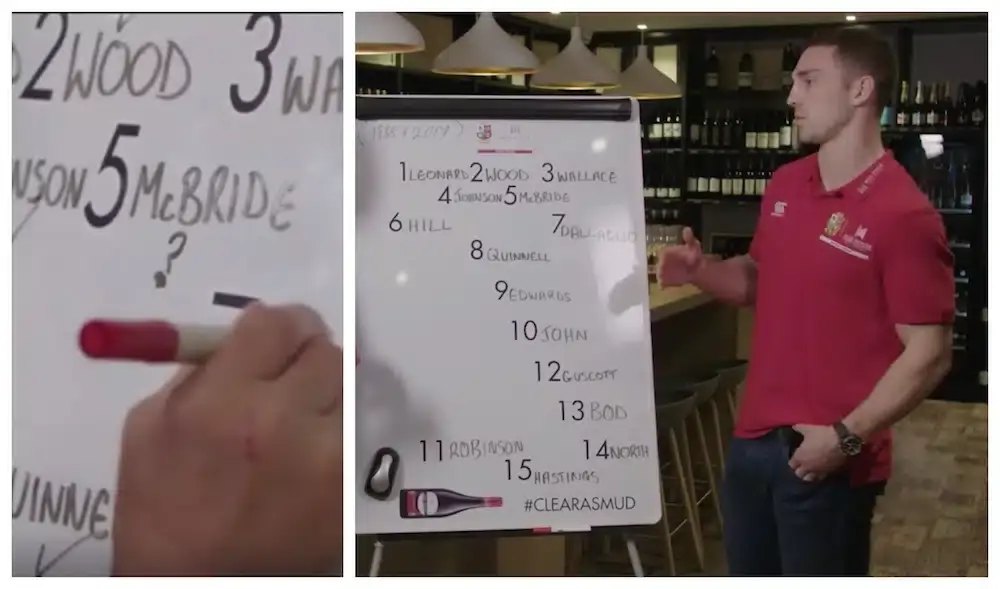 2 WOOD 3 WA
NSON 5 McBRIDE
?
7
UINNE
1 LEONARD 2 WOOD 3 WALLACE
4 JOHNSON 5 McBRIDE
6 HILL 7 DALLAGLIO
8 QUINNELL
9 EDWARDS
10 JOHN
12 GUSCOTT
13 BOD
11 ROBINSON 14 NORTH
15 HASTINGS
#CLEARASMUD